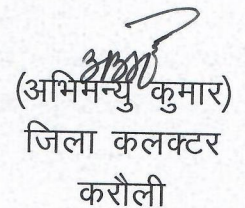 (अभिमन्यु कुमार)
जिला कलक्टर
करौली